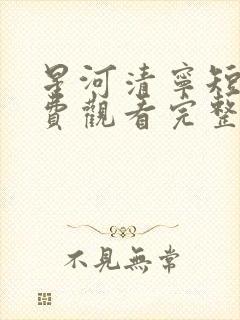 星河清寧短
費觀看完整
不見無常